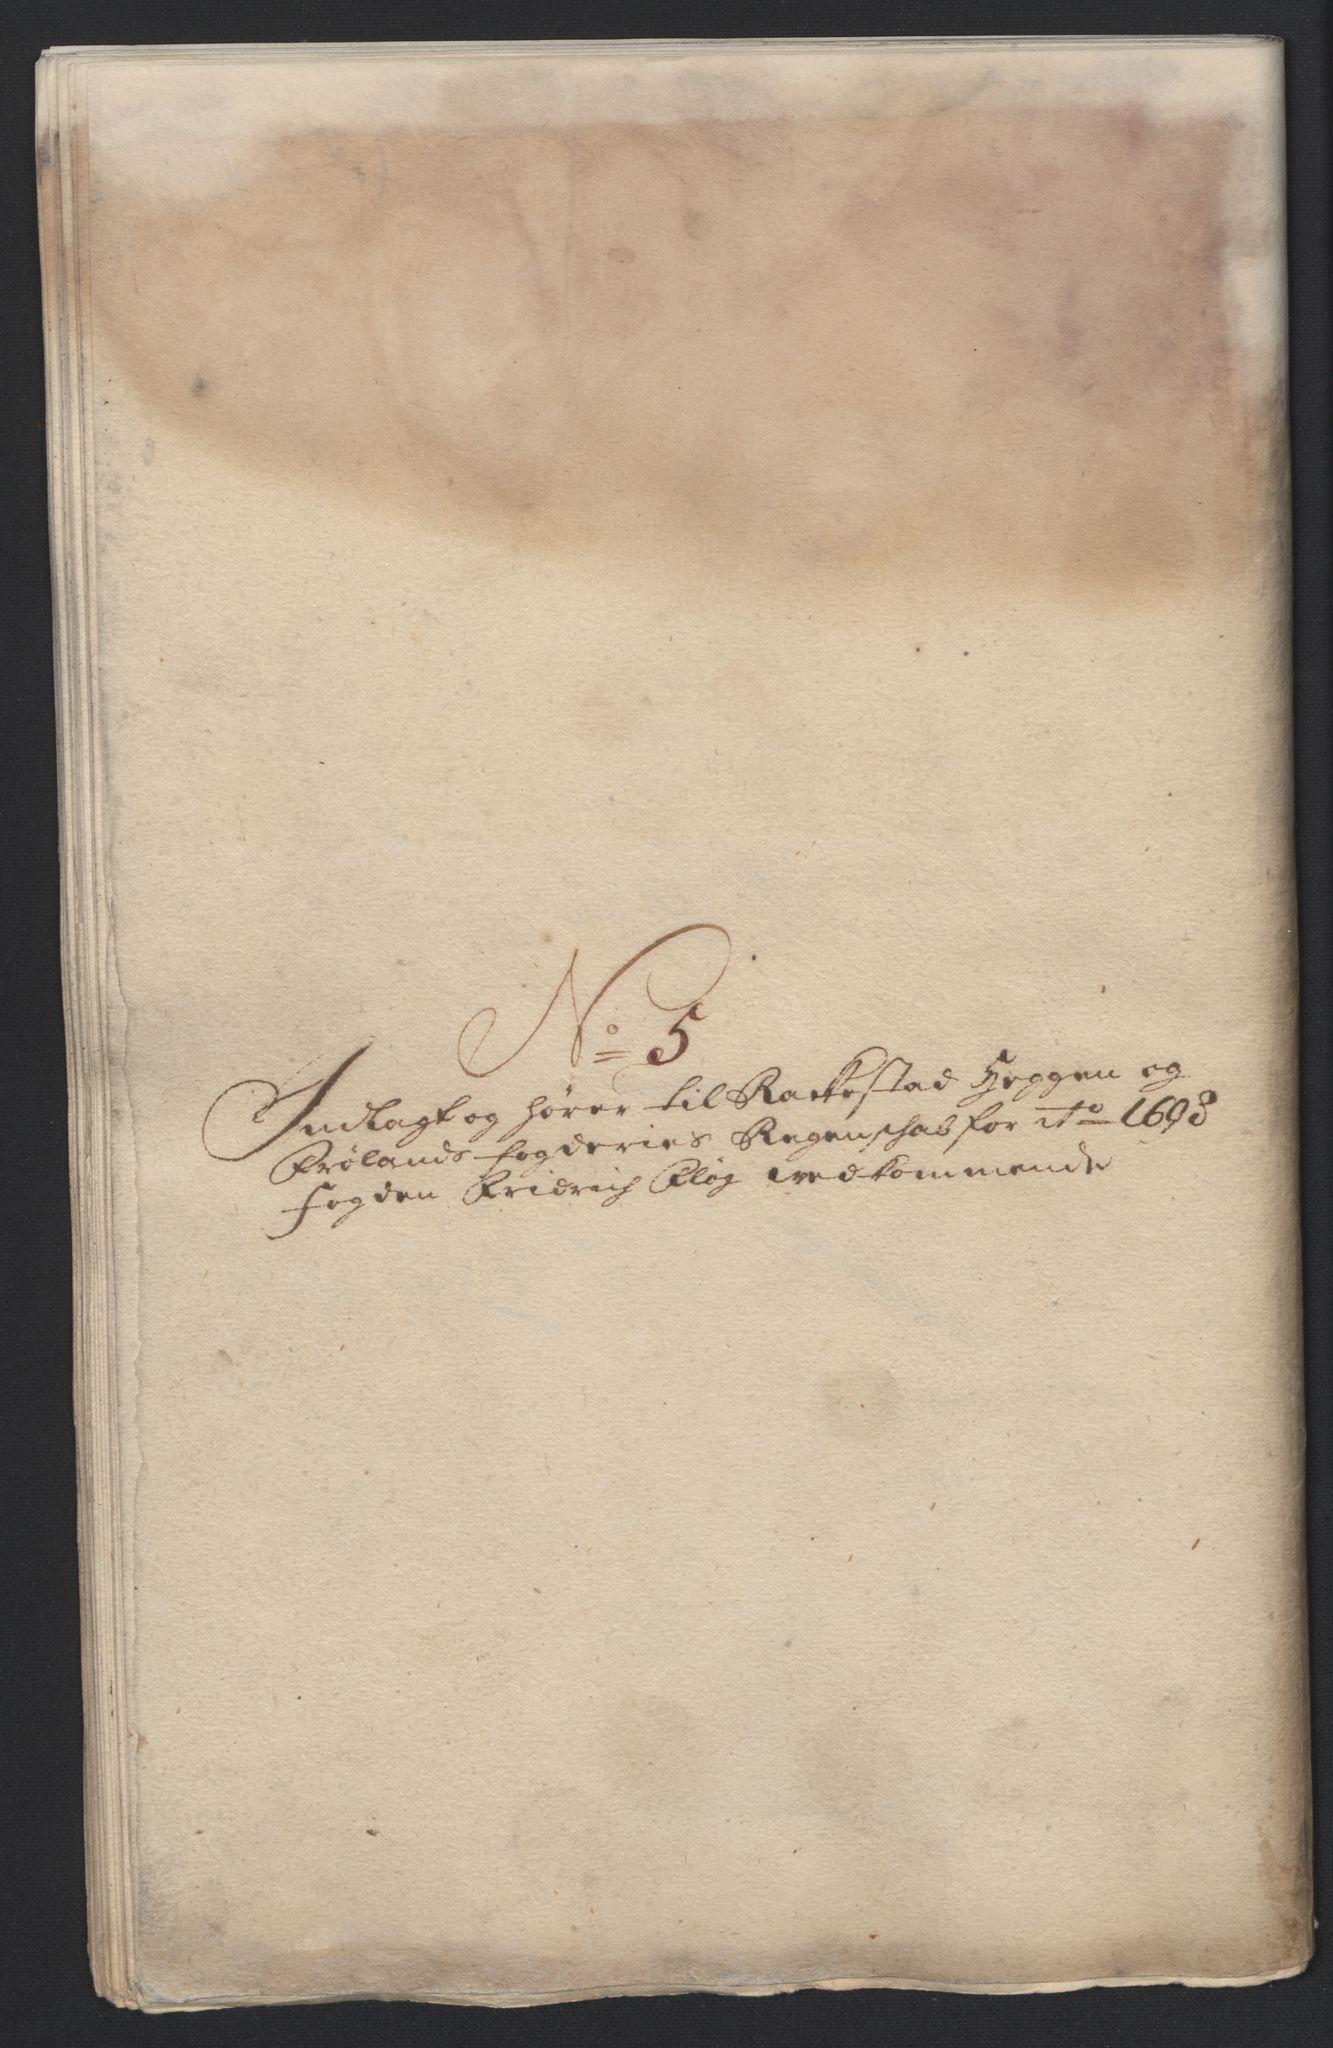 No 5
Indlagt og hører til Rackestad Heggen og
Frølands fogderies Regenschab for Ao 1698
Fogden Fridrich Pløg vedkommende